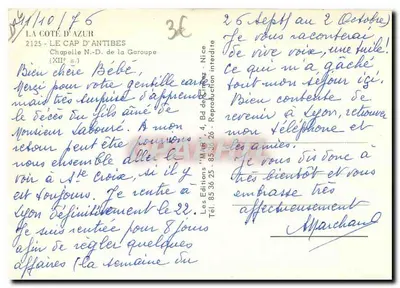 11/10/76
3€
LA COTE D'AZUR
2125 - LE CAP D'ANTIBES
Chapelle N.-D. de la Garoupe
(XIIe s.)
Bien chère Bébé,
Merci pour votre gentille carte
mais très surprise d'apprendre
le décès du fils aîné de
Monsieur Labouré. A mon
retour peut être pourrons
nous ensemble aller le
voir à Ste Croix, si il y
est toujours. Je rentre à
Lyon définitivement le 22.
Je suis rentrée pour 8 jours
afin de régler quelques
affaires (la semaine du
Les Editions "Mar", 4, Bd de - Nice
Tél. 85 36 25 - 85 26 - Reproduction interdite
26 Sept/ au 2 Octobre)
Je vous raconterai
de vive voix, une tuile!
Ce qui m'a gâché
tout mon séjour ici.
Bien contente de
revenir à Lyon, retrouver
mon téléphone et
les amies.
Je vous dis donc à
très bientôt et vous
embrasse très
affectueusement
AMarchand